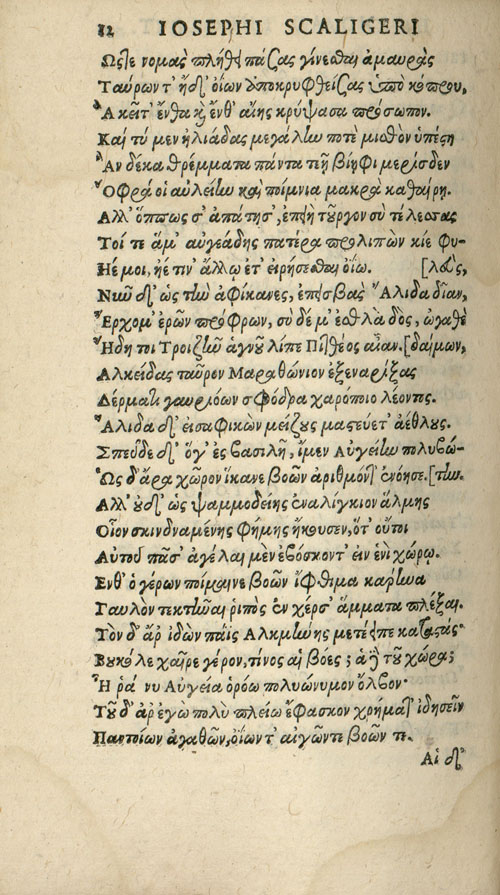 32 IOSEPHI SCALIGERI
Ὥστε νομὰς πλήθει πάσας γίνεσθαι ἀμαυρὰς
Ταύρων τ' ἠδ' ὀΐων ἀποκρυφθείσας ὑπὸ κόπρου,
Ἃ κεῖτ' ἔνθα καὶ ἔνθ' αἴης κρύψασα πρόσωπον.
Καί τύ μεν ἡλιάδας μεγάλην ποτὲ μισθὸν ὑπέστη
Ἂν δέκα θρέμματα πάντα τεῇ βίηφι μερίσδεν
Ὄφρά οἱ αὐλείην καὶ ποίμνια μακρὰ καθαίρῃ.
Ἀλλ' ὅππως σ' ἀπάτησ', ἐπεὶ τοὔργον σὺ τέλεσσας
Τοί τε ἅμ' αὐγεάδης πατέρα προλιπὼν κίε Φυ-
Ηέ μοι, ἠέ τιν' ἄλλῳ ἔτ' εἰρήσεσθαι ὀΐω. [λεὺς,
Νιῶ δ' ὡς τὴν ἀφίκανες, ἐπεὶσβὰς Ἄλιδα δῖαν,
Ἔρχομ' ἐρῶν πρόφρων, σὺ δέ μ' ἐσθλὰ δὸς, ὠγαθὲ
Ἤδη τοι Τροιζῆν' ἁγνοῦ λίπε Πιτθέος αἶαν. [δαῖμων,
Ἀλκείδας ταῦρον Μαραθώνιον ἐξεναρίξας
Δέρματι γαυριόων σφόδρα χαρόποιο λέοντις.
Ἄλιδα δ' εἰσαφικὼν μείζους μαστεύετ' ἀέθλους.
Σπεῦδε δ' ὅγ' ἐς βασιλῆ, ἴμεν Αὐγείην πολυβώ-
Ὣς δ' ἄρα χῶρον ἵκανε βοῶν ἀριθμόν τ' ἐνόησε. [την.
Ἀλλ' οὐδ' ὡς ψαμμοδείης ἐναλίγκιον ἅλμης
Οἷον σκινδναμένης φήμης ἤκουσεν, ὅτ' οὗτοι
Αὐτοῦ πᾶσ' ἀγέλαι μὲν ἐβόσκοντ' εἰν ἑνὶ χώρῳ.
Ἔνθ' ὁ γέρων ποίμαινε βοῶν ἴφθιμα κάρηνα
Γαυλὸν τεκτῆναι ῥιπὸς ἐν χέρσ' ἅμματα πλέξαι.
Τὸν δ' ἄρ ἰδὼν πάϊς Ἀλκμήνης μετέειπε καταστάς·
Βουκόλε χαῖρε γέρον, τίνος αἱ βόες; ἁ δὲ τοῦ χώρα;
Ἦ ῥά νυ Αὐγεία ὁρόω πολυώνυμον ὄλβον·
Τοῦ δ' ἄρ ἐγὼ πολὺ πλείω ἔφασκον χρήματ' ἰδησεῖν
Παντοίων ἀγαθῶν, ὀΐων τ' αἰγῶντε βοῶν τε.
Αἱ δ'